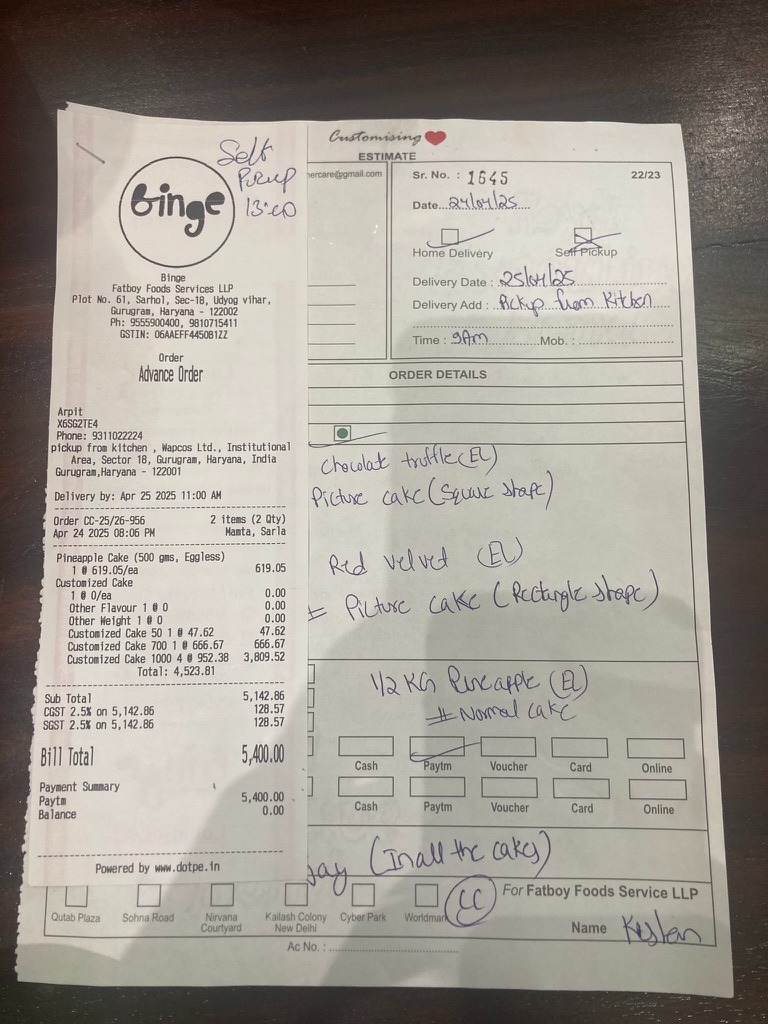 Self
Pickup
13:00
Binge
Binge
Fatboy Foods Services LLP
Plot No. 61, Sarhol, Sec-18, Udyog vihar,
Gurugram, Haryana - 122002
Ph: 9555900400, 9810715411
GSTIN: 06AAEFF4450B1ZZ
Order
Advance Order
Arpit
X6SG2TE4
Phone: 9311022224
pickup from kitchen , Wapcos Ltd., Institutional
Area, Sector 18, Gurugram, Haryana, India
Gurugram,Haryana - 122001
Delivery by: Apr 25 2025 11:00 AM
Order CC-25/26-956 2 items (2 Qty)
Apr 24 2025 08:06 PM Mamta, Sarla
Pineapple Cake (500 gms, Eggless)
1 @ 619.05/ea 619.05
Customized Cake
1 @ 0/ea 0.00
Other Flavour 1 @ 0 0.00
Other Weight 1 @ 0 0.00
Customized Cake 50 1 @ 47.62 47.62
Customized Cake 700 1 @ 666.67 666.67
Customized Cake 1000 4 @ 952.38 3,809.52
Total: 4,523.81
Sub Total 5,142.86
CGST 2.5% on 5,142.86 128.57
SGST 2.5% on 5,142.86 128.57
Bill Total 5,400.00
Payment Summary
Paytm 5,400.00
Balance 0.00
Powered by www.dotpe.in
Customising
ESTIMATE
ercare@gmail.com
Sr. No. : 1645 22/23
Date...24/04/25
Home Delivery Self Pickup
Delivery Date : 25/04/25
Delivery Add : Pickup from Kitchen
Time : 9Am Mob. :
ORDER DETAILS
Chocolate truffle (EL)
Picture cake (Square shape)
Red velvet (EL)
# Picture cake (Rectangle shape)
1/2 KG Pineapple (EL)
# Normal cake
Cash Paytm Voucher Card Online
Cash Paytm Voucher Card Online
(In all the cakes)
Qutab Plaza
Sohna Road
Nirvana
Courtyard
Kailash Colony
New Delhi
Cyber Park
Worldmark
CC
For Fatboy Foods Service LLP
Name
Ac No. :